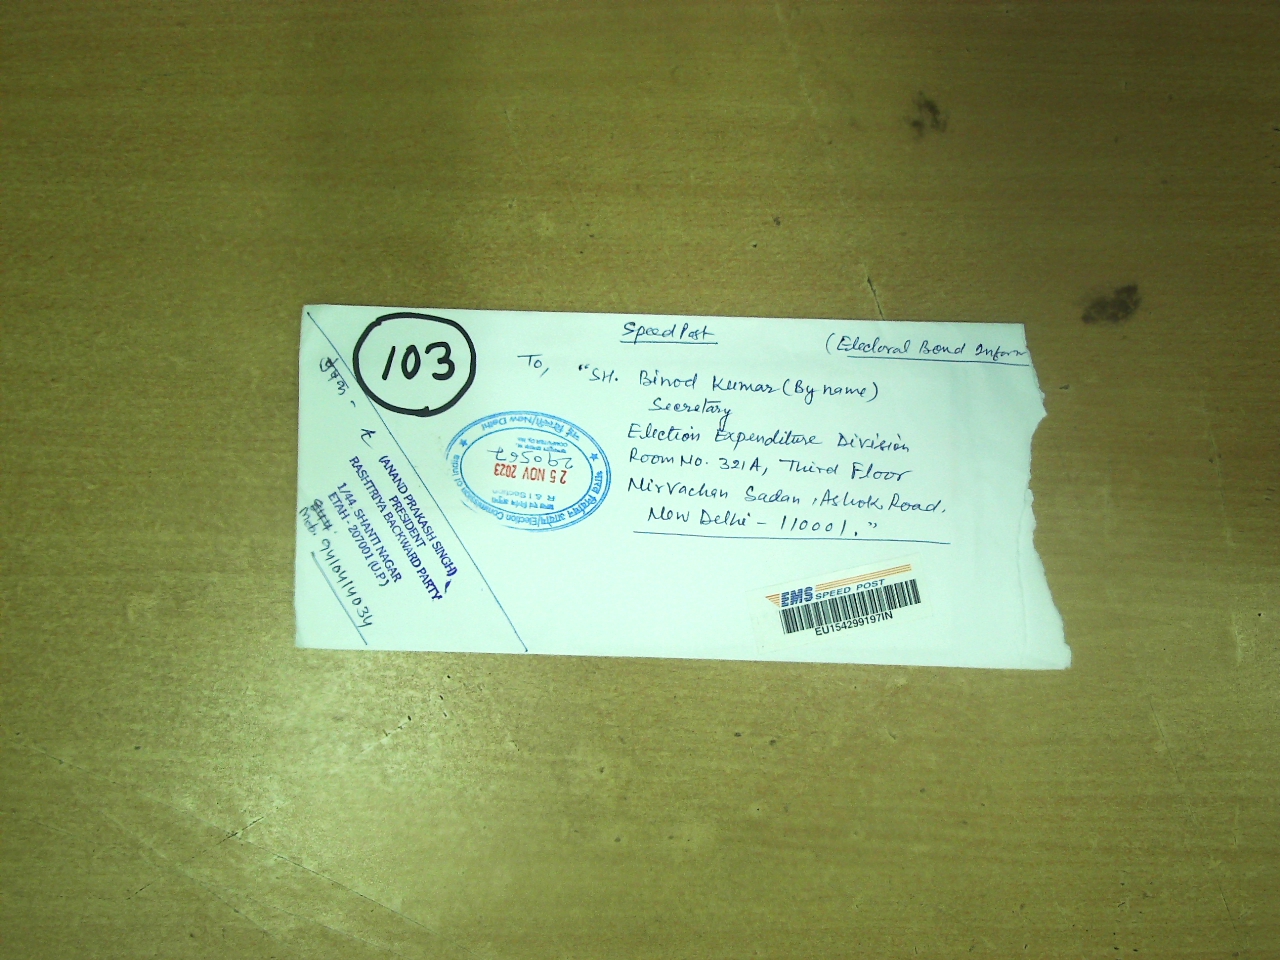 Speed Post
(Electoral Bond Inform
103
To,
"SH. Binod Kumar (By name)
Secretary
Election Expenditure Division
Room No. 321A, Third Floor
Nirvachan Sadan, Ashok Road,
New Delhi - 110001."
प्रेषक -
(ANAND PRAKASH SINGH)
PRESIDENT
RASHTRIYA BACKWARD PARTY
1/44 SHANTI NAGAR
ETAH - 207001 (U.P.)
Mob. 9410414034
भारत निर्वाचन आयोग/Election Commission of India
R & I Section
25 NOV 2023
290567
COMPUTER Dy. No.
नई दिल्ली/New Delhi
EMS SPEED POST
EU154299197IN